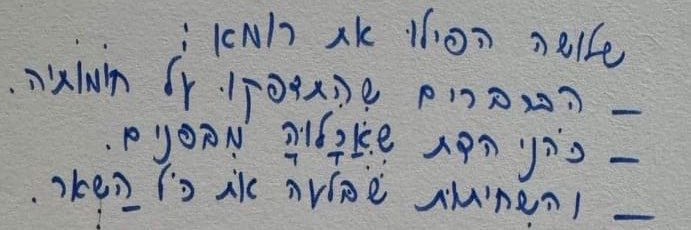 שלושה הפילו את רומא:
_ הברברים שֶהִתדפקו על חוֹמוֹתיה.
_ כֹהני הדת שֶאִכְּלוּהָ מִבפנים.
_ והשחיתות שֶבלעה את כל הַשאר.